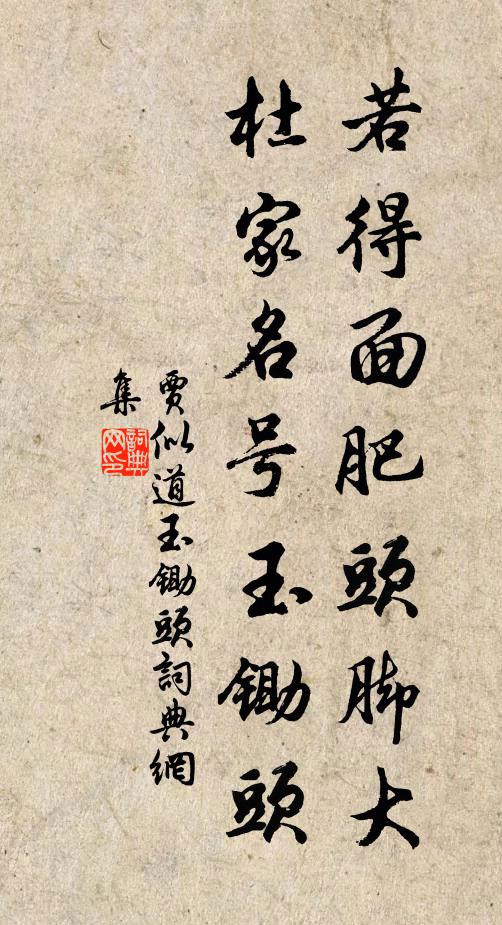 若得面肥頭脚大
杜家名号玉鋤頭
賈似道玉鋤頭詞典網
集
詞典
网印